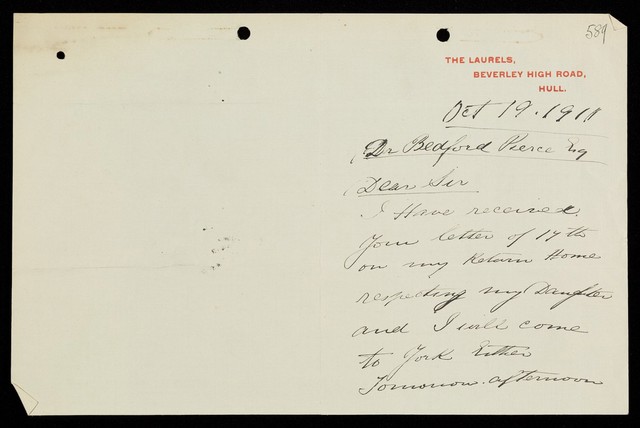 589
THE LAURELS,
BEVERLEY HIGH ROAD,
HULL.
Oct 19. 1911
Dr Bedford Pierce Esq
Dear Sir
I Have received
Your letter of 17th
on my Return Home
respecting my Daughter
and I will come
to York Either
Tomorrow. afternoon